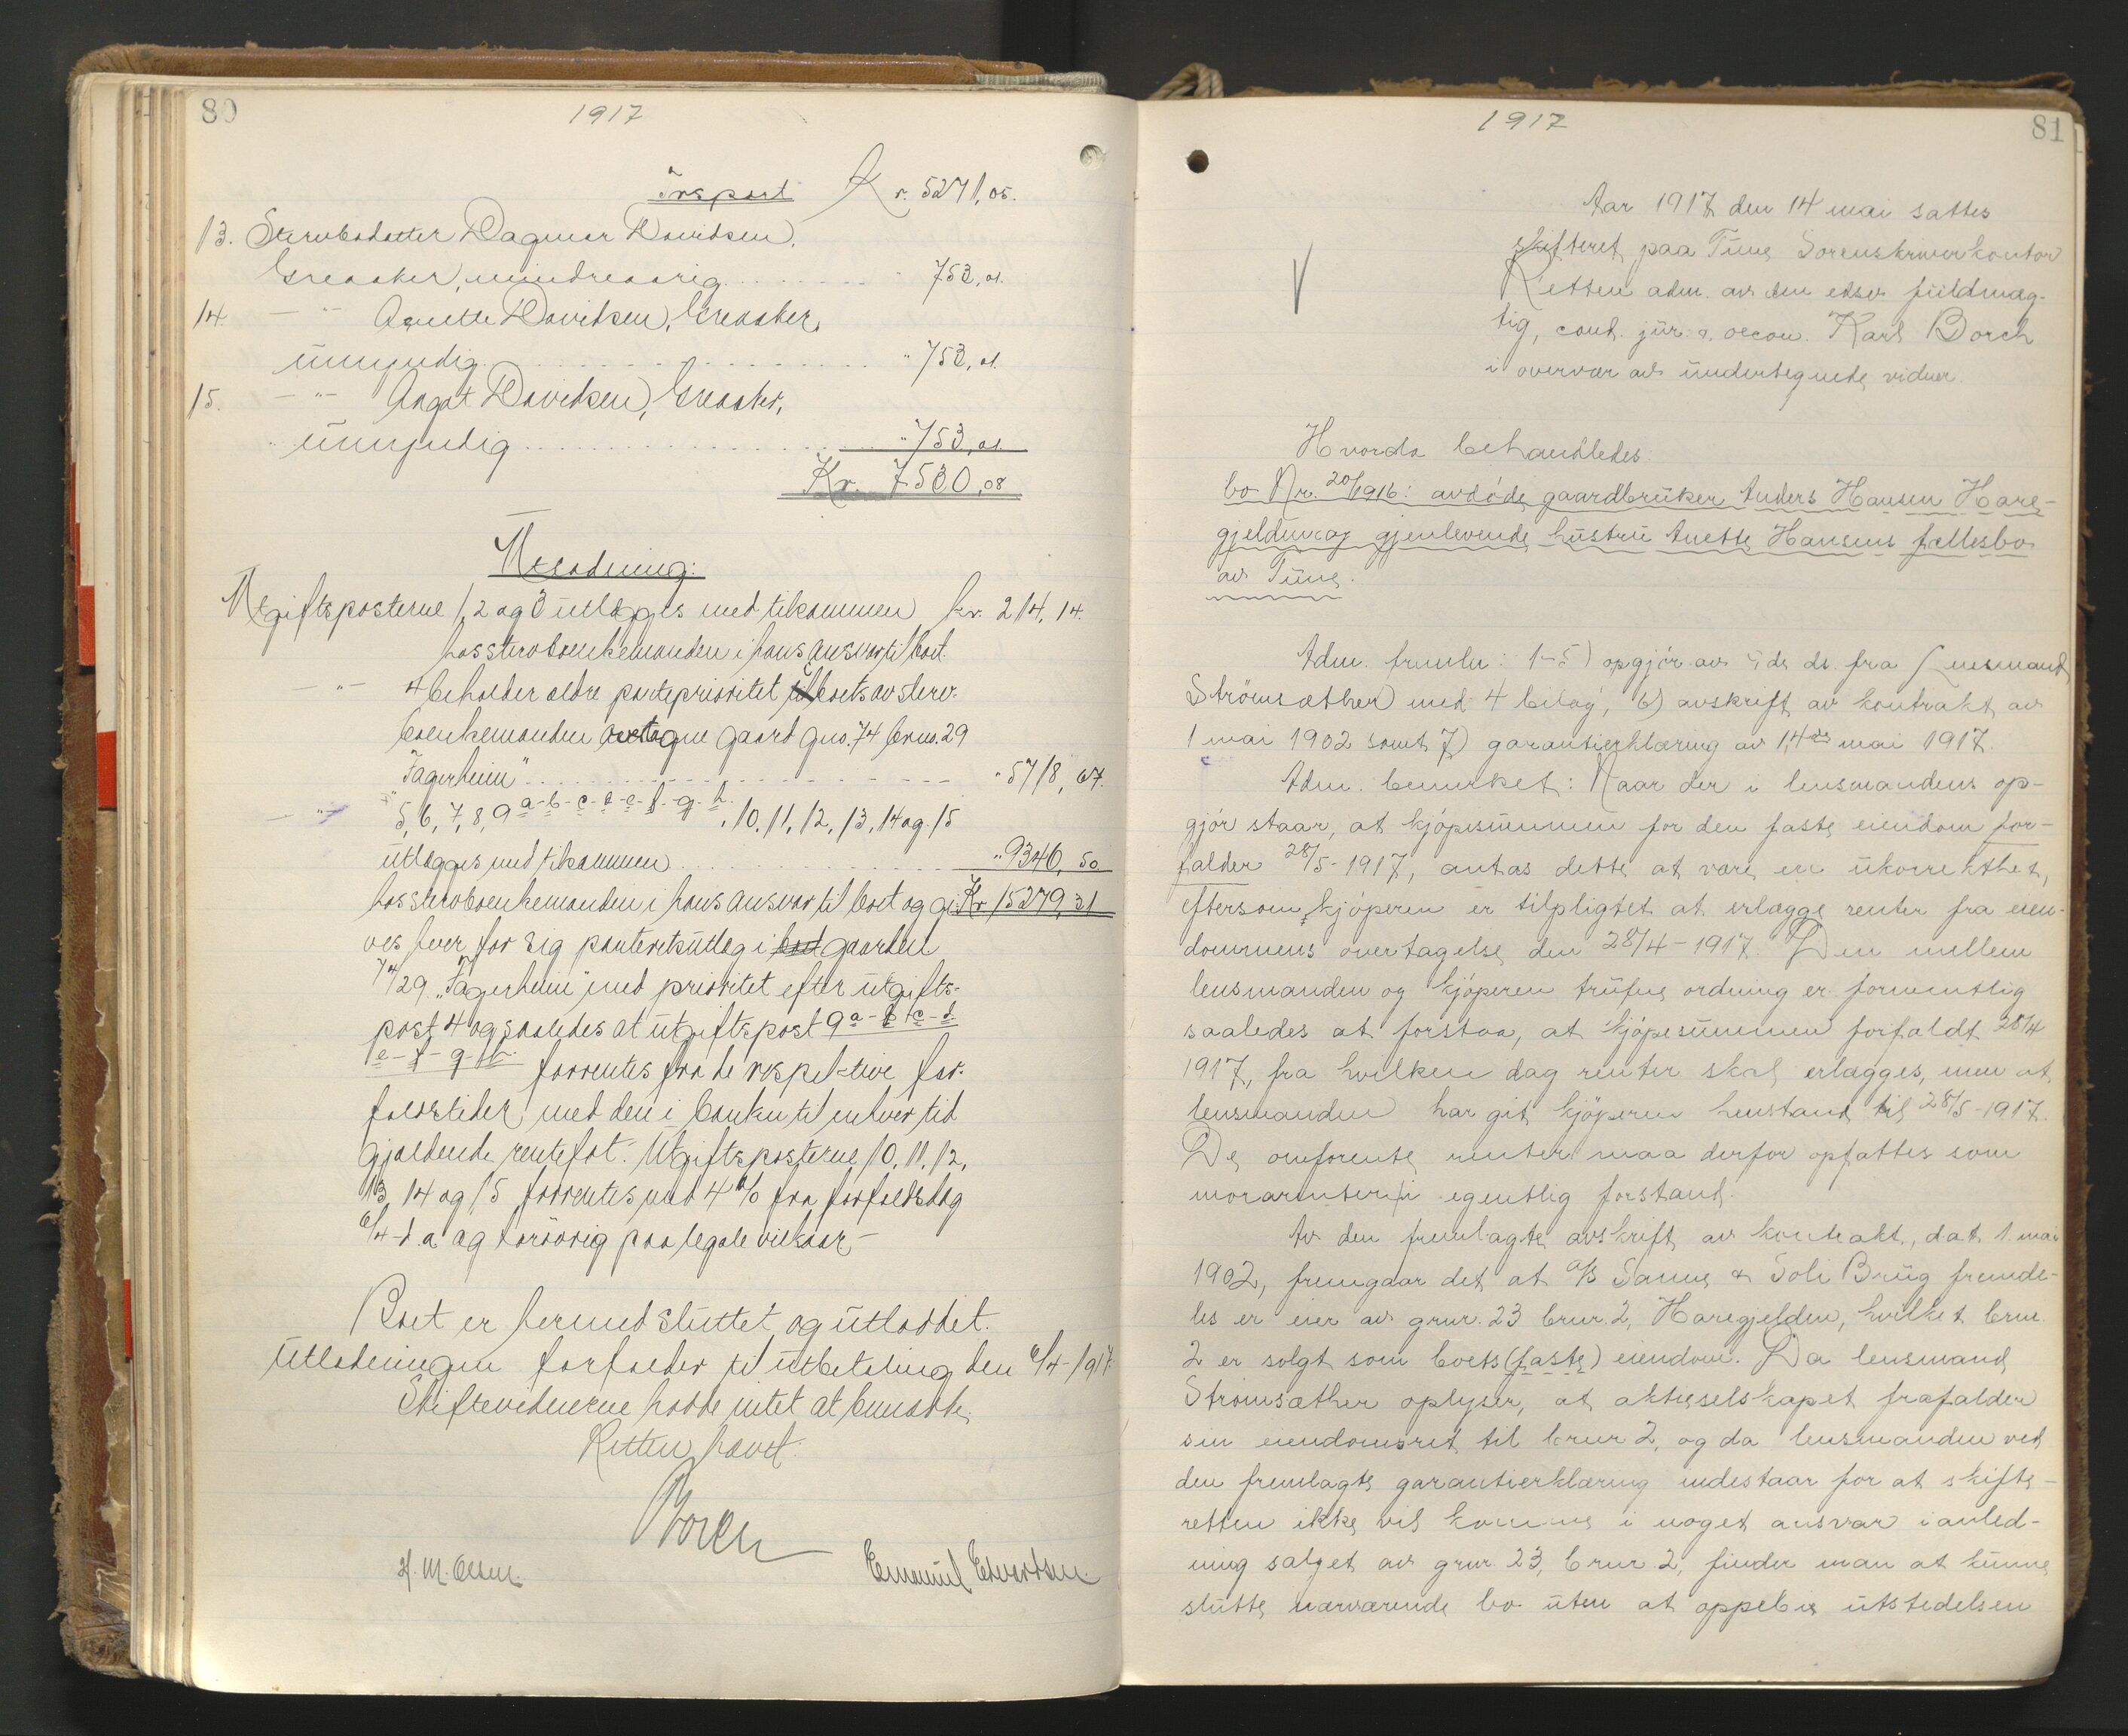 80
1917
Trsport Kr. 5271,05.
13. Stervbodatter Dagmar Davidsen,
Greaaker, mindreaarig " 753,01.
14. — " — Agnette Davidsen, Greaaker,
umyndig " 753,01.
15. — " — Aagot Davidsen, Greaaker,
umyndig " 753,01
Kr. 7530,08
Utlodning:
Utgiftsposterne 1, 2 og 3 utlægges med tilkommen kr. 214,14.
hos stervboenkemanden i hans ansvar til boet.
— " — 4 beholder ældre panteprioritet i boets av sterv-
boenkemanden overtagne gaard gno. 74 brno. 29
"Fagerheim" " 5718,67.
— " — 5, 6, 7, 8, 9 a-b-c-d-e-f-g-h, 10, 11, 12, 13, 14 og 15
utlægges med tilkommen " 9346,50
hos stervboenkemanden i hans ansvar til boet og gi- Kr 15279,31
ves hver for sig panteretsutlæg i gaarden
74/29 "Fagerheim" med prioritet efter utgifts-
post 4 og saaledes at utgiftspost 9 a-b-c-d
e-f-g-h. forrentes fra de respektive for-
faldstider med den i banken til enhver tid
gjældende rentefot. Utgiftsposterne 10, 11, 12,
13, 14 og 15 forrentes med 4% fra forfaldsdag
6/4 d.a. og forøvrig paa legale vilkaar.-
Boet er hermed sluttet og utloddet.
Utlodningen forfalder til utbetaling den 6/4-1917.
Skiftevidnerne hadde intet at bemærke.
Retten hævet.
Borch
H. M. Olsen. Emanuel Edvardsen.
1917
81
Aar 1917 den 14 mai sattes
skifteret paa Tune Sorenskriverkontor
Retten adm. av den edsv. fuldmæg-
tig, cand. jur. & oecon. Karl Borch
i overvær av undertegnede vidner.
Hvorda behandledes
bo Nr. 20/1916: avdøde gaardbruker Anders Hansen Hare-
gjelden og gjenlevende hustru Anette Hansens fællesbo
av Tune.
Adm. fremla: 1-5) opgjør av 5 ds. fra lensmand
Strömsæther med 4 bilag, 6) avskrift av kontrakt av
1 mai 1902 samt 7) garantierklæring av 14de mai 1917.
Adm. bemerket: Naar der i lensmandens op-
gjør staar, at kjøpesummen for den faste eiendom for-
falder 28/5-1917, antas dette at være en ukorrekthet,
eftersom kjøperen er tilpligtet at erlægge renter fra eien-
dommens overtagelse den 28/4-1917. Den mellem
lensmanden og kjøperen trufne ordning er formentlig
saaledes at forstaa, at kjøpesummen forfaldt 28/4
1917, fra hvilken dag renter skal erlægges, men at
lensmanden har git kjøperen henstand til 28/5-1917.
De omforente renter maa derfor opfattes som
morarenter i egentlig forstand.
Av den fremlagte avskrift av kontrakt, dat. 1. mai
1902, fremgaar det at A/S Sanne & Soli Brug fremde-
les er eier av grnr. 23 brnr. 2, Haregjelden, hvilket brnr.
2 er solgt som boets (faste) eiendom. Da lensmand
Strömsæther oplyser, at aktieselskapet frafalder
sin eiendomsret til brnr 2, og da lensmanden ved
den fremlagte garantierklæring indestaar for at skifte-
retten ikke vil komme i noget ansvar i anled-
ning salget av grnr. 23, brnr. 2, finder man at kunne
slutte nærværende bo uten at oppebie utstedelsen